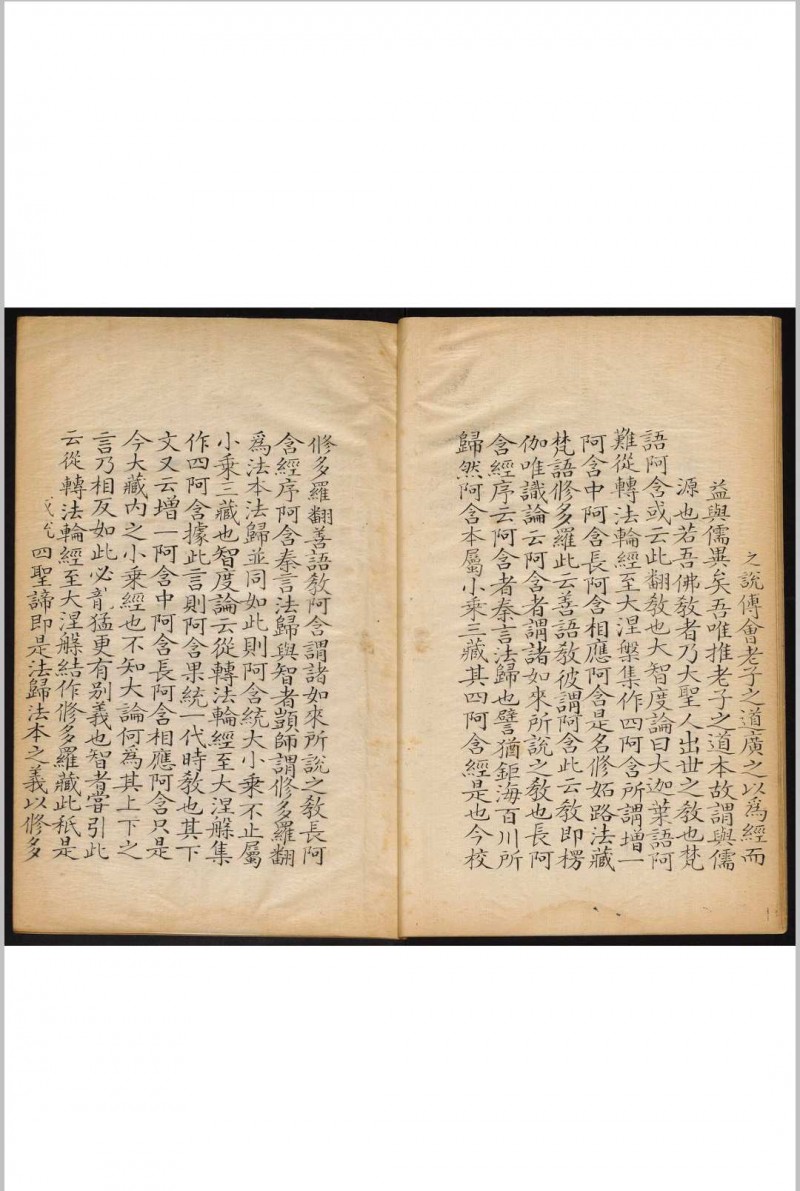 之說傅會老子之道廣之以為經而
益與儒異矣吾唯推老子之道本故謂與儒
源也若吾佛教者乃大聖人出世之教也梵
語阿含或云此翻教也大智度論曰大迦葉語阿
難從轉法輪經至大涅槃集作四阿含所謂增一
阿含中阿含長阿含相應阿含是名修妬路法藏
梵語修多羅此云善語教彼謂阿含此云教即楞
伽唯識論云阿含者謂諸如來所說之教也長阿
含經序云阿含者秦言法歸也譬猶鉅海百川所
歸然阿含本屬小乘三藏其四阿含經是也今校
修多羅翻善語教阿含謂諸如來所說之教長阿
含經序阿含秦言法歸與智者顗師謂修多羅翻
為法本法歸並同如此則阿含統大小乘不止屬
小乘三藏也智度論云從轉法輪經至大涅槃集
作四阿含據此言則阿含果統一代時教也其下
文又云增一阿含中阿含長阿含相應阿含只是
今大藏内之小乘經也不知大論何為其上下之
言乃相反如此必音猛更有别義也智者嘗引此
云從轉法輪經至大涅槃結作修多羅藏此秖是
或說四聖諦即是法歸法本之義以修多